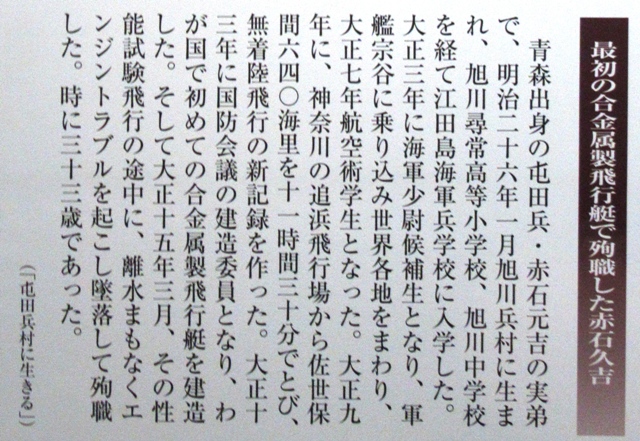 最初の合金属製飛行艇で殉職した赤石久吉
青森出身の屯田兵・赤石元吉の実弟
で、明治二十六年一月旭川兵村に生ま
れ、旭川尋常高等小学校、旭川中学校
を経て江田島海軍兵学校に入学した。
大正三年に海軍少尉候補生となり、軍
艦宗谷に乗り込み世界各地をまわり、
大正七年航空術学生となった。大正九
年に、神奈川の追浜飛行場から佐世保
間六四〇海里を十一時間三十分でとび、
無着陸飛行の新記録を作った。大正十
三年に国防会議の建造委員となり、わ
が国で初めての合金属製飛行艇を建造
した。そして大正十五年三月、その性
能試験飛行の途中に、離水まもなくエ
ンジントラブルを起こし墜落して殉職
した。時に三十三歳であった。
(「屯田兵村に生きる」)